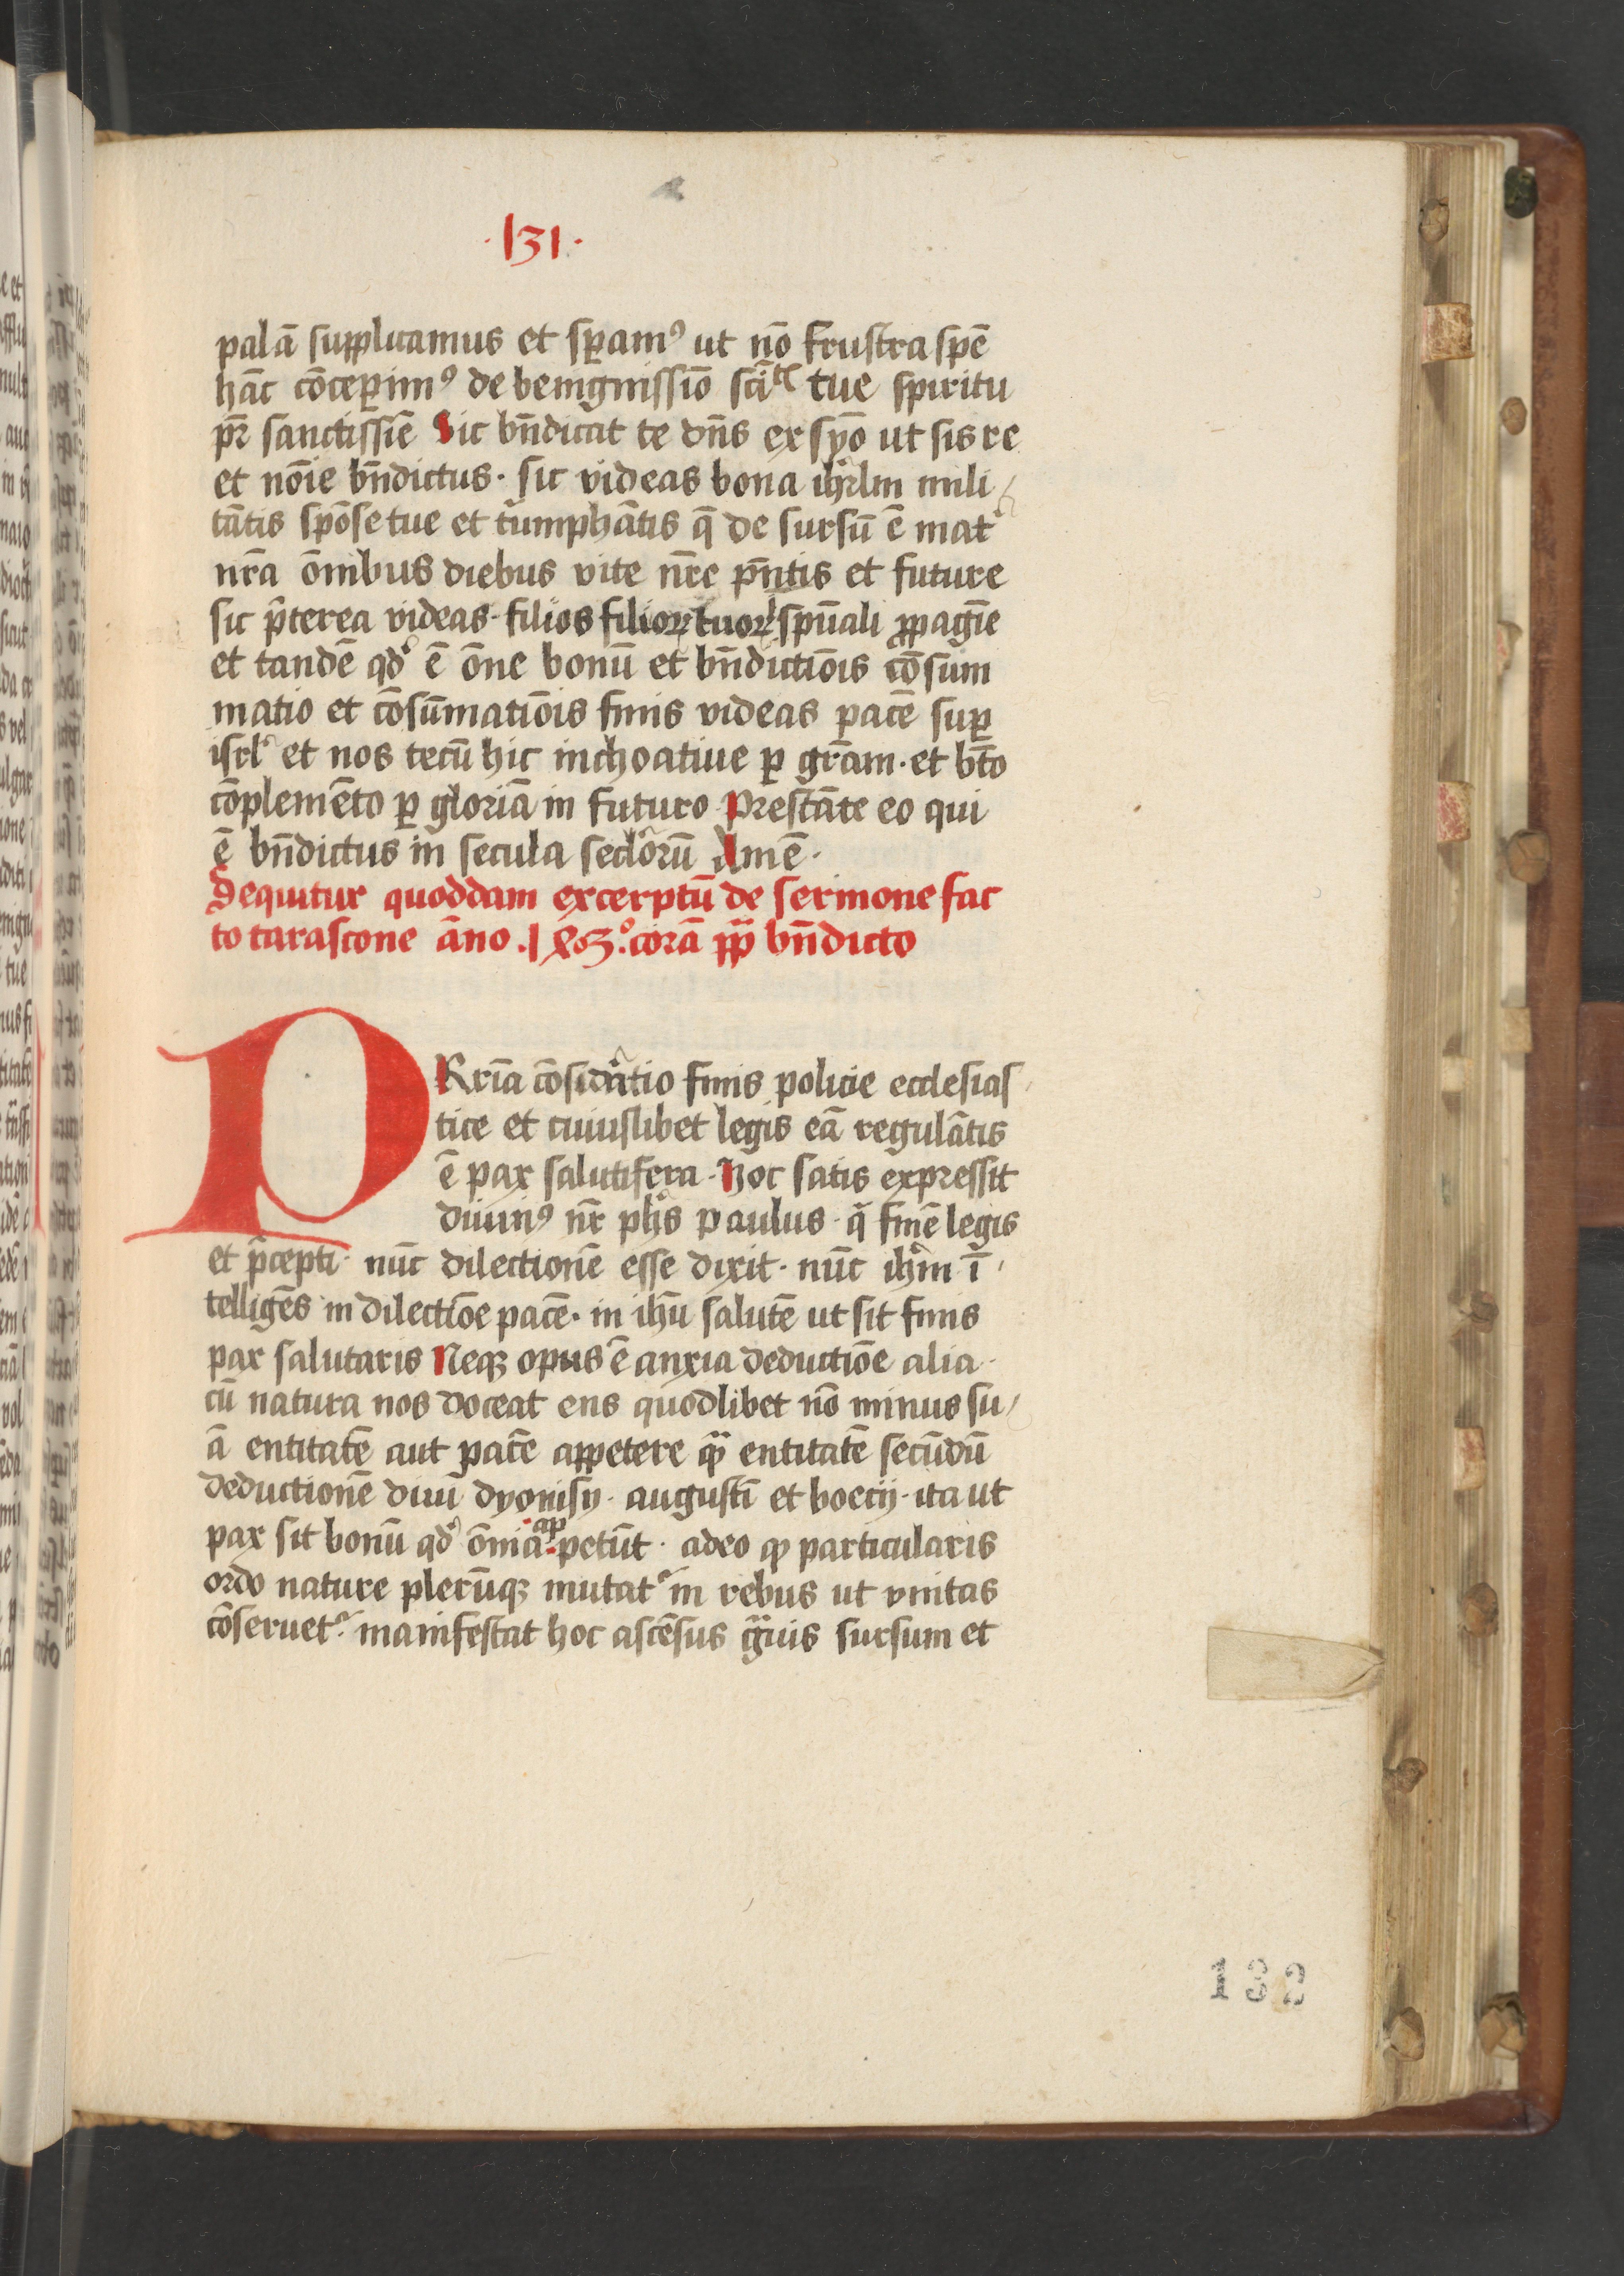 ·131·
palā supplicamus et sꝑamꝰ ut nō frustra spē
hāc cōceꝑimꝰ de benignissīo scītͭ tue spiritu
pr̄ sanctissīe Sic bn̄dicat te dn̄s ex syō ut sis re
et nōie bn̄dictus · sic videas bona ihrlm mili
tātis spōse tue et tͥumphātis q̄ de sursū ē mat̾
nr̄a ōnibus diebus vite nr̄e pn̄tis et future
sic p̄terea videas · filios filioꝝ tuoꝝ spūali ꝓpagīe
et tandē qđ ē ōne bonū et bn̄dictiōis cōsum
matio et cōsūmatiōis finis videas pacē suꝑ
isrl̾ et nos tecū hic inchoatiue ꝑ gr̄am · et bt̄o
cōplemēto ꝑ gloriā in futuro Prestāte eo qui
ē bn̄dictus in secula seclōrū Amē ·
Sequitur quoddam excerptū de sermone fac
to tarascone āno . coꝛā pp̄ bn̄dicto
PRria cōsidr̄atio finis policie ecclesias
tice et cuiuslibet legis eā regulātis
ē pax salutifera · Hoc satis expressit
diuinꝰ nr̄ ph̄s paulus · q̄ finē legis
et p̄cepti · nūc dilectionē esse dixit · nūc ih̄m ī
telligēs in dilectiōe pacē · in ihū salutē ut sit finis
pax salutaris Neqꝫ opus ē anxia deductiōe alia ·
cū natura nos doceat ens quodlibet nō minus su
ā entitatē aut pacē appetere qͣ entitatē secūdū
deductionē diui dyonisij · augustī et boecij · ita ut
pax sit bonū qđ ōnia ap petūt · adeo ꝙ particularis
ordo nature plerūqꝫ mutat᷑ in rebus ut vnitas
cōseruet᷑ · manifestat hoc ascēsus gͣuis sursum et
132